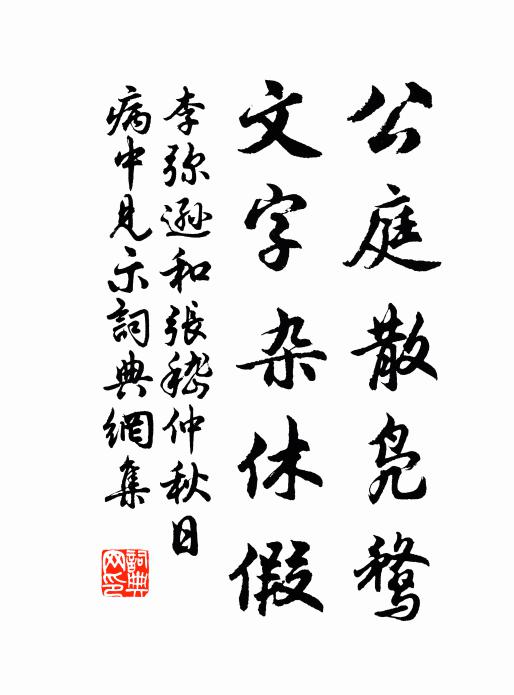 公庭散凫鹜
文字杂休假
李弥逊和张嵇仲秋日
病中见示词典网集
词典网印